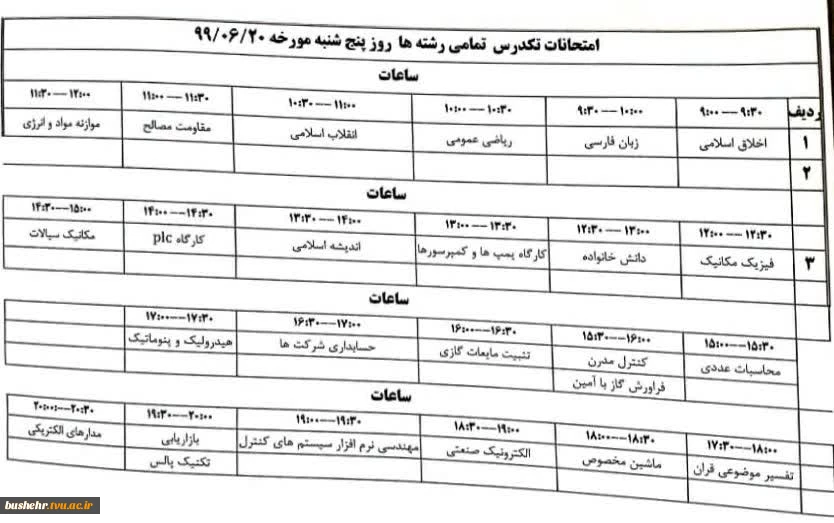 امتحانات تکدرس تمامی رشته ها روز پنج شنبه مورخه ۹۹/۰۶/۲۰
ساعات
ردیف ۹:۰۰ -- ۹:۳۰ ۹:۳۰ -- ۱۰:۰۰ ۱۰:۰۰ -- ۱۰:۳۰ ۱۰:۳۰ -- ۱۱:۰۰ ۱۱:۰۰ -- ۱۱:۳۰ ۱۱:۳۰ -- ۱۲:۰۰
۱ اخلاق اسلامی زبان فارسی ریاضی عمومی انقلاب اسلامی مقاومت مصالح موازنه مواد و انرژی
۲
ساعات
۱۲:۰۰ -- ۱۲:۳۰ ۱۲:۳۰ -- ۱۳:۰۰ ۱۳:۰۰ -- ۱۳:۳۰ ۱۳:۳۰ -- ۱۴:۰۰ ۱۴:۰۰ -- ۱۴:۳۰ ۱۴:۳۰--۱۵:۰۰
۳ فیزیک مکانیک دانش خانواده کارگاه پمپ ها و کمپرسورها اندیشه اسلامی کارگاه plc مکانیک سیالات
ساعات
۱۵:۰۰--۱۵:۳۰ ۱۵:۳۰--۱۶:۰۰ ۱۶:۰۰--۱۶:۳۰ ۱۶:۳۰--۱۷:۰۰ ۱۷:۰۰--۱۷:۳۰
محاسبات عددی کنترل مدرن تثبیت مایعات گازی حسابداری شرکت ها هیدرولیک و پنوماتیک
فراورش گاز با آمین
ساعات
۱۷:۳۰--۱۸:۰۰ ۱۸:۰۰--۱۸:۳۰ ۱۸:۳۰--۱۹:۰۰ ۱۹:۰۰--۱۹:۳۰ ۱۹:۳۰--۲۰:۰۰ ۲۰:۰۰--۲۰:۳۰
تفسیر موضوعی قران ماشین مخصوص الکترونیک صنعتی مهندسی نرم افزار سیستم های کنترل بازاریابی مدارهای الکتریکی
تکنیک پالس
bushehr.tvu.ac.ir